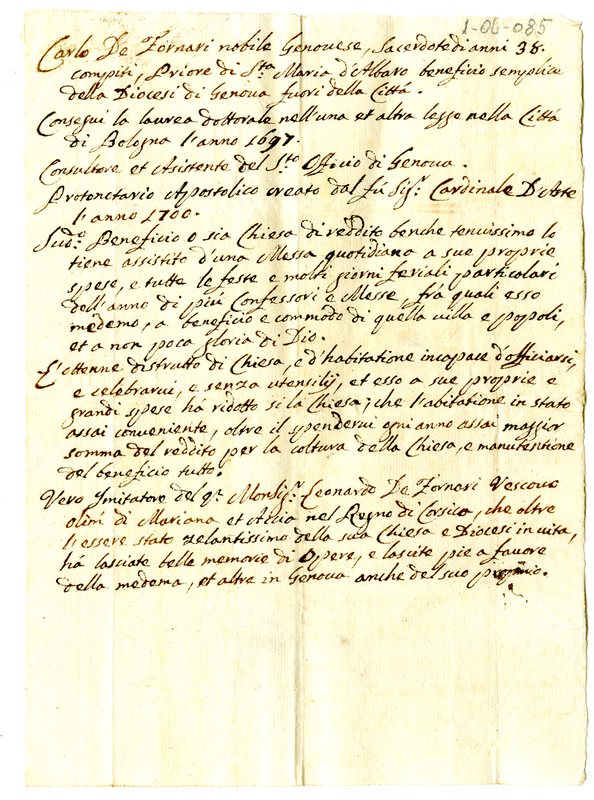 1-04-085
Carlo De Fornari nobile Genovese, Sacerdote di anni 38.
compiti, Priore di S.ta Maria d'Albaro beneficio semplice
della Diocesi di Genova fuori della Città.
Conseguì la laurea dottorale nell'una et altra legge nella Città
di Bologna l'anno 1697.
Consultore et Asistente del S.to Officio di Genova.
Protonotario Apostolico creato dal fù Sig.r Cardinale D'Aste
l'anno 1700.
Sud.o Beneficio o sia Chiesa di reddito benche tenuissimo lo
tiene assistito d'una Messa quotidiana a sue proprie
spese, e tutte le feste e molti giorni feriali particolari
dell'anno di più Confessori e Messe, frà quali esso
medemo, a beneficio e commodo di quella villa e popoli,
et a non poca gloria di Dio.
L'ottenne distrutto di Chiesa, e d'habitatione incapace d'officiarsi,
e celebrarvi, e senza utensilij, et esso a sue proprie e
grandi spese hà ridotto sì la Chiesa, che l'abitatione in stato
assai conveniente, oltre il spendervi ogni anno assai maggior
somma del reddito per la coltura della Chiesa, e manutentione
del beneficio tutto.
Vero Imitatore del q.m Monsig.r Leonardo De Fornari Vescovo
olim di Mariana et Accia nel Regno di Corsica, che oltre
l'essere stato zelantissimo della sua Chiesa e Diocesi in vita,
hà lasciate belle memorie di Opere, e lascite pie a favore
della medema, et altre in Genova anche del suo proprio.